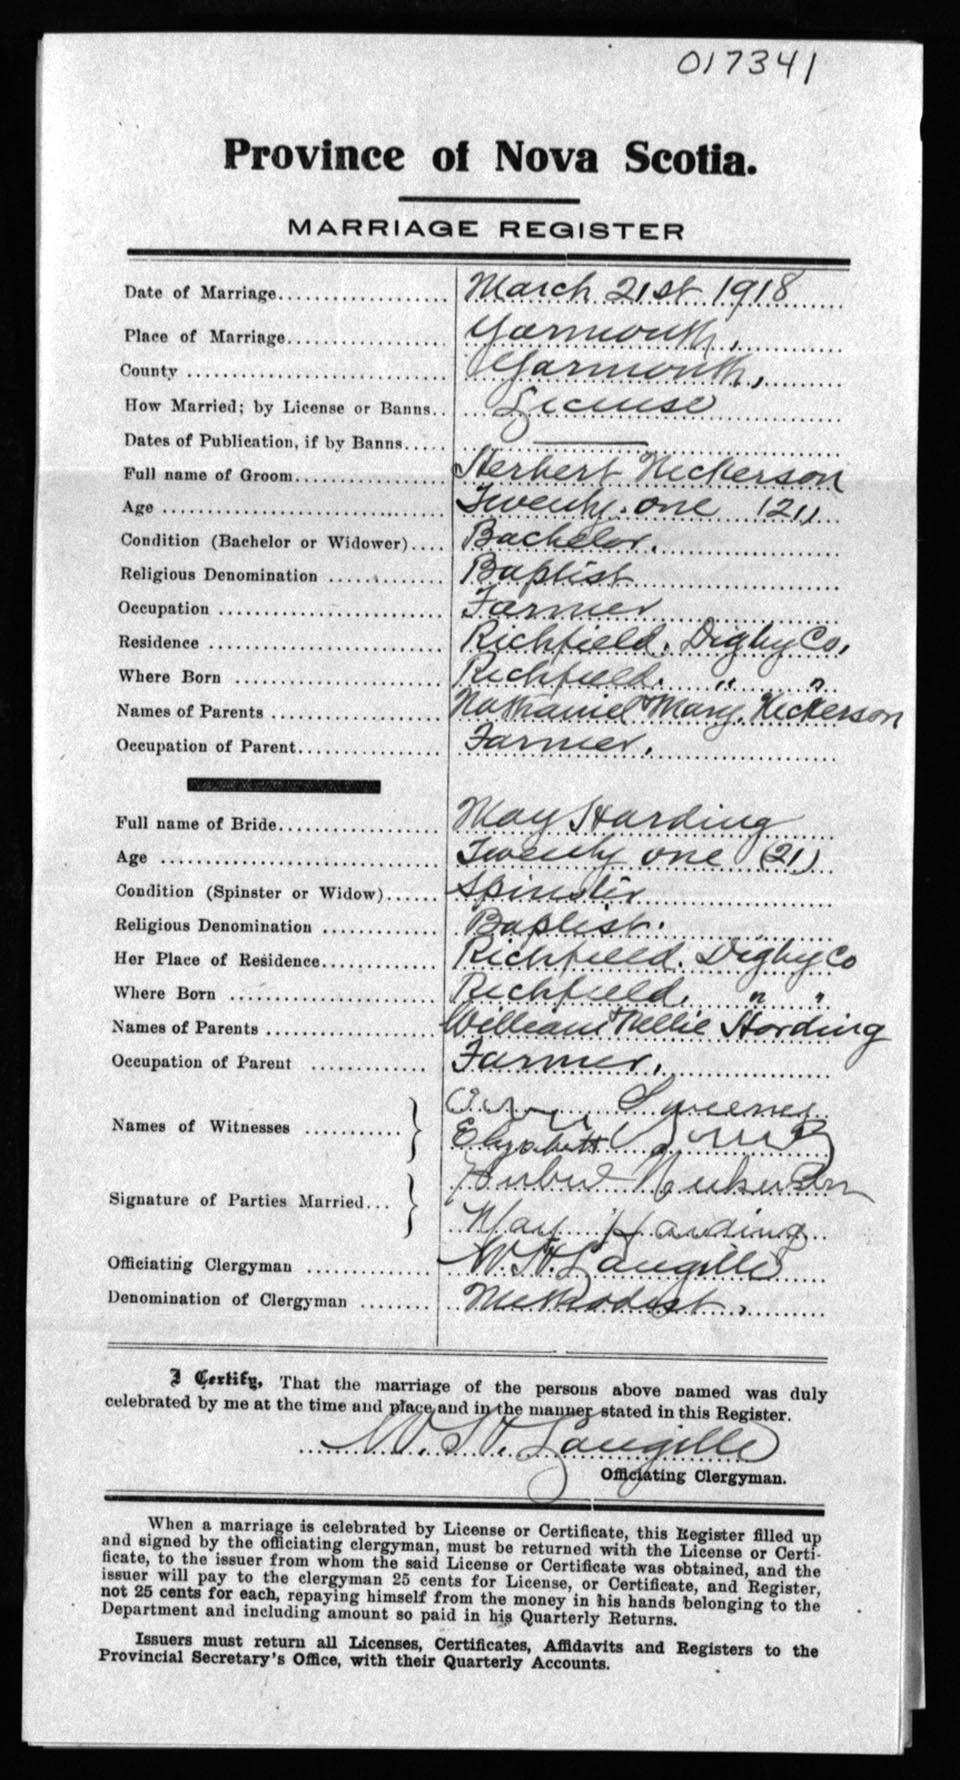 017341
Province of Nova Scotia.
MARRIAGE REGISTER
Date of Marriage.................... March 21st 1918
Place of Marriage.................... Yarmouth,
County .................... Yarmouth,
How Married; by License or Banns.. License
Dates of Publication, if by Banns..... ———
Full name of Groom.................... Herbert Nickerson
Age .................... Twenty-one (21)
Condition (Bachelor or Widower).... Bachelor.
Religious Denomination .................... Baptist
Occupation .................... Farmer
Residence .................... Richfield. Digby Co.
Where Born .................... Richfield. " "
Names of Parents .................... Nathaniel Mary. Nickerson
Occupation of Parent.................... Farmer.
Full name of Bride.................... May Harding
Age .................... Twenty one (21)
Condition (Spinster or Widow)...... Spinster
Religious Denomination .................... Baptist.
Her Place of Residence.................... Richfield. Digby Co
Where Born .................... Richfield. " "
Names of Parents .................... William Nellie Harding
Occupation of Parent .................... Farmer.
Names of Witnesses ........... } Sweeney
Elizabeth
Signature of Parties Married... } Herbert Nickerson
May Harding
Officiating Clergyman .................... W. H. Langille
Denomination of Clergyman ........ Methodist.
I Certify, That the marriage of the persons above named was duly
celebrated by me at the time and place and in the manner stated in this Register.
W. H. Langille
Officiating Clergyman.
When a marriage is celebrated by License or Certificate, this Register filled up
and signed by the officiating clergyman, must be returned with the License or Certi-
ficate, to the issuer from whom the said License or Certificate was obtained, and the
issuer will pay to the clergyman 25 cents for License, or Certificate, and Register,
not 25 cents for each, repaying himself from the money in his hands belonging to the
Department and including amount so paid in his Quarterly Returns.
Issuers must return all Licenses, Certificates, Affidavits and Registers to the
Provincial Secretary's Office, with their Quarterly Accounts.